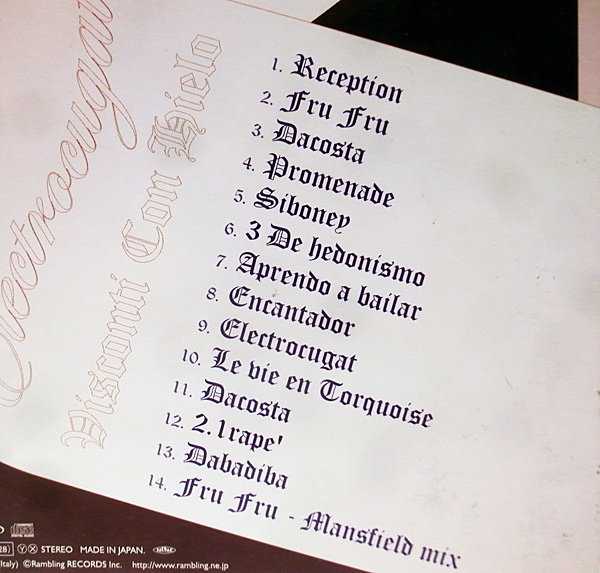 Electrocugat
Visconti Con Hielo
1. Reception
2. Fru Fru
3. Dacosta
4. Promenade
5. Siboney
6. 3 De hedonismo
7. Aprendo a bailar
8. Encantador
9. Electrocugat
10. Le vie en Torquoise
11. Dacosta
12. 2.1rape'
13. Dabadiba
14. Fru Fru - Mansfield mix
28) Y X STEREO MADE IN JAPAN.
Italy) ©Rambling RECORDS Inc. http://www.rambling.ne.jp